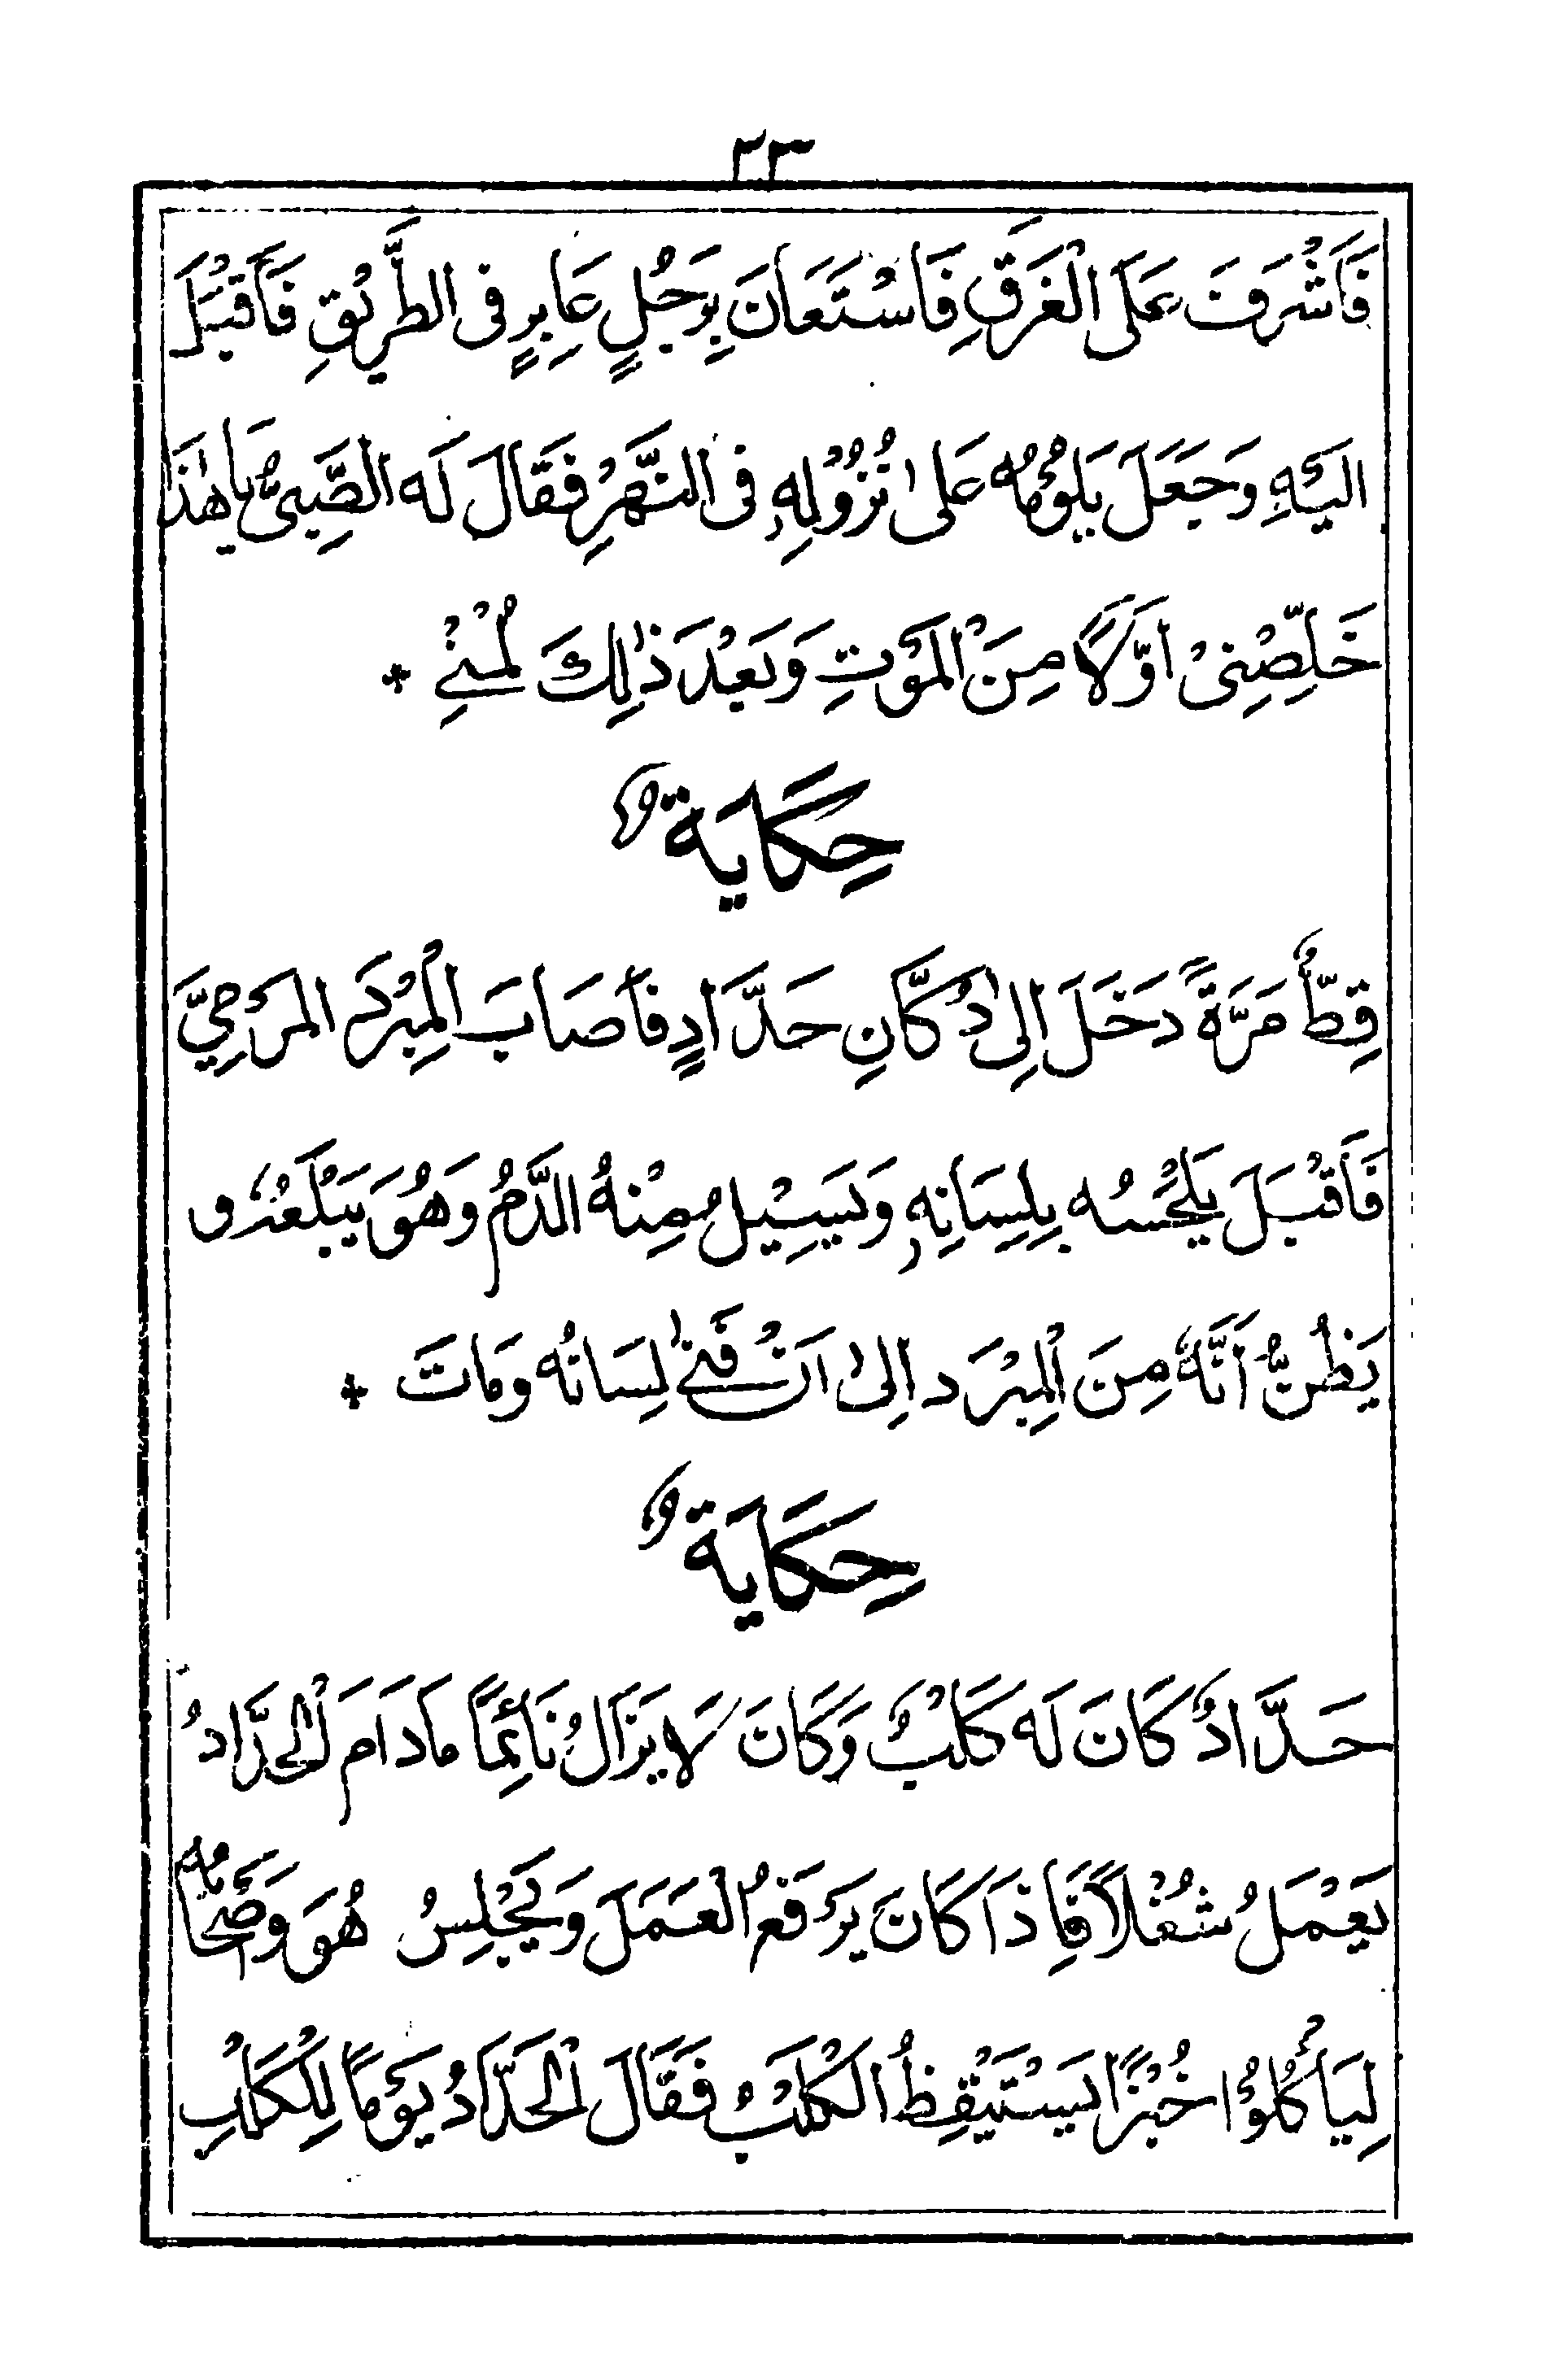 ٢٣
فَأَشْرَفَ عَلَى الْغَرَقِ فَاسْتَعَانَ بِرَجُلٍ عَابِرٍ فى الطَّرِيْقِ فَأَقْبَلَ
اليَْهِ وَجَعَلَ يَلُوْمُه عَلى نُزُوْلِهٖ فى النَّهْرِ فَقَالَ لَه الصَّبِىُّ يَا هٰذَا
خَلِّصْنِىْ اوَّلًا مِنَ الْمَوْتِ وَبَعْدَ ذٰلِكَ لُمْنِىْ +
حِكَايَةٌ
قِطٌّ مَرَّةً دَخَلَ اِلى دُكَّانِ حَدَّادٍ فَأصَابَ الْمِبْرَدَ المَرْمِىَّ
فَاَقْبَلَ يَلْحَسُه بِلِسَانِهٖ وَيَسِيْلُ مِنْهُ الدَّمُ وَهُوَ يَبْلَعُهٗ و
يَظُنُّ أَنَّهٗ مِنَ الْمِبْرَد اِلىٰ اَنْ فَنٰى لِسَانُه وَمَاتَ +
حِكَايَةٌ
حَدَّادٌ كَانَ لَه كَلْبٌ وَكَانَ لَا يَزَالُ نَائِمًا مَا دَامَ الْحَدَّادُ
يَعْمَلُ شُغْلًا فَاِذَا كَانَ يَرْفَعُ الْعَمَلَ وَيَجْلِسُ هُوَ وَصْحَابُه
لِيَأْكُلُوْا خُبْزًا يَسْتَيْقِظُ الْكَلْبُ فَقَالَ الْحَدَّادُ يَوْمًا لِلْكَلْبِ